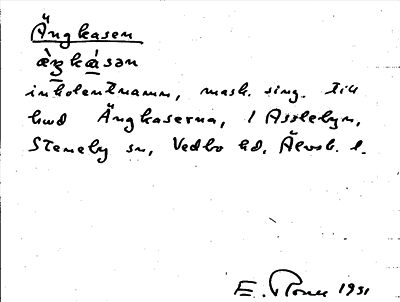 Ängkasen
inkolentnamn, mask. sing. till
hwd Ängkaserna, i Asslebyn,
Steneby sn, Vedbo hd, Älvsb. l.
E. 1931